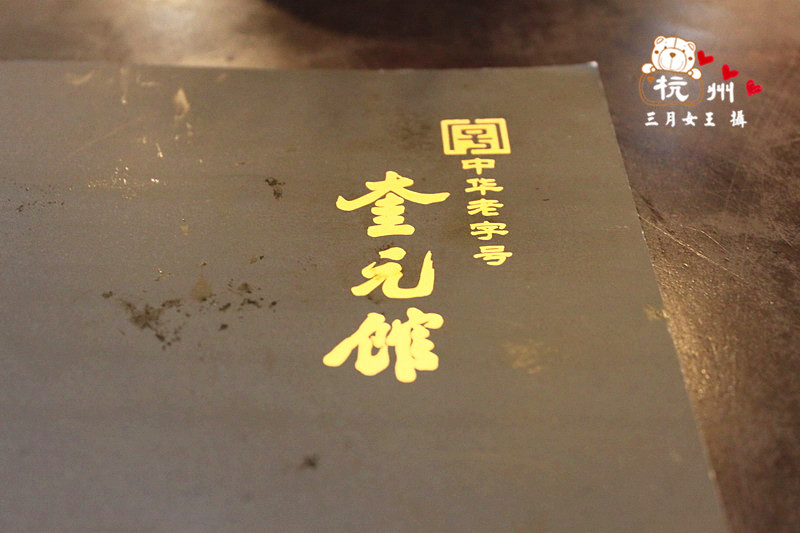 中华老字号
奎元馆
杭州
三月女王 攝